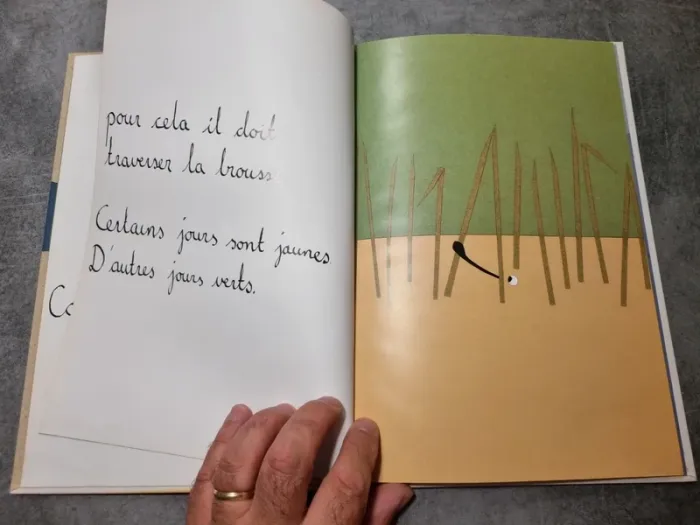 pour cela il doit
traverser la brouss
Certains jours sont jaunes.
D'autres jours verts.